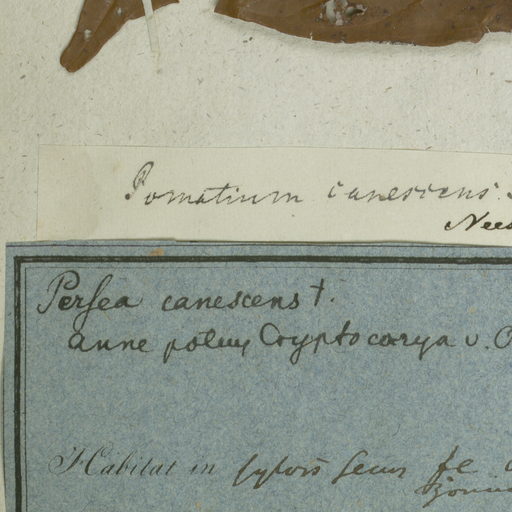 Pomatium canescens.
Nees
Persea canescens †.
anne potius Cryptocarya v. O
Habitat in sylvis secus fl.